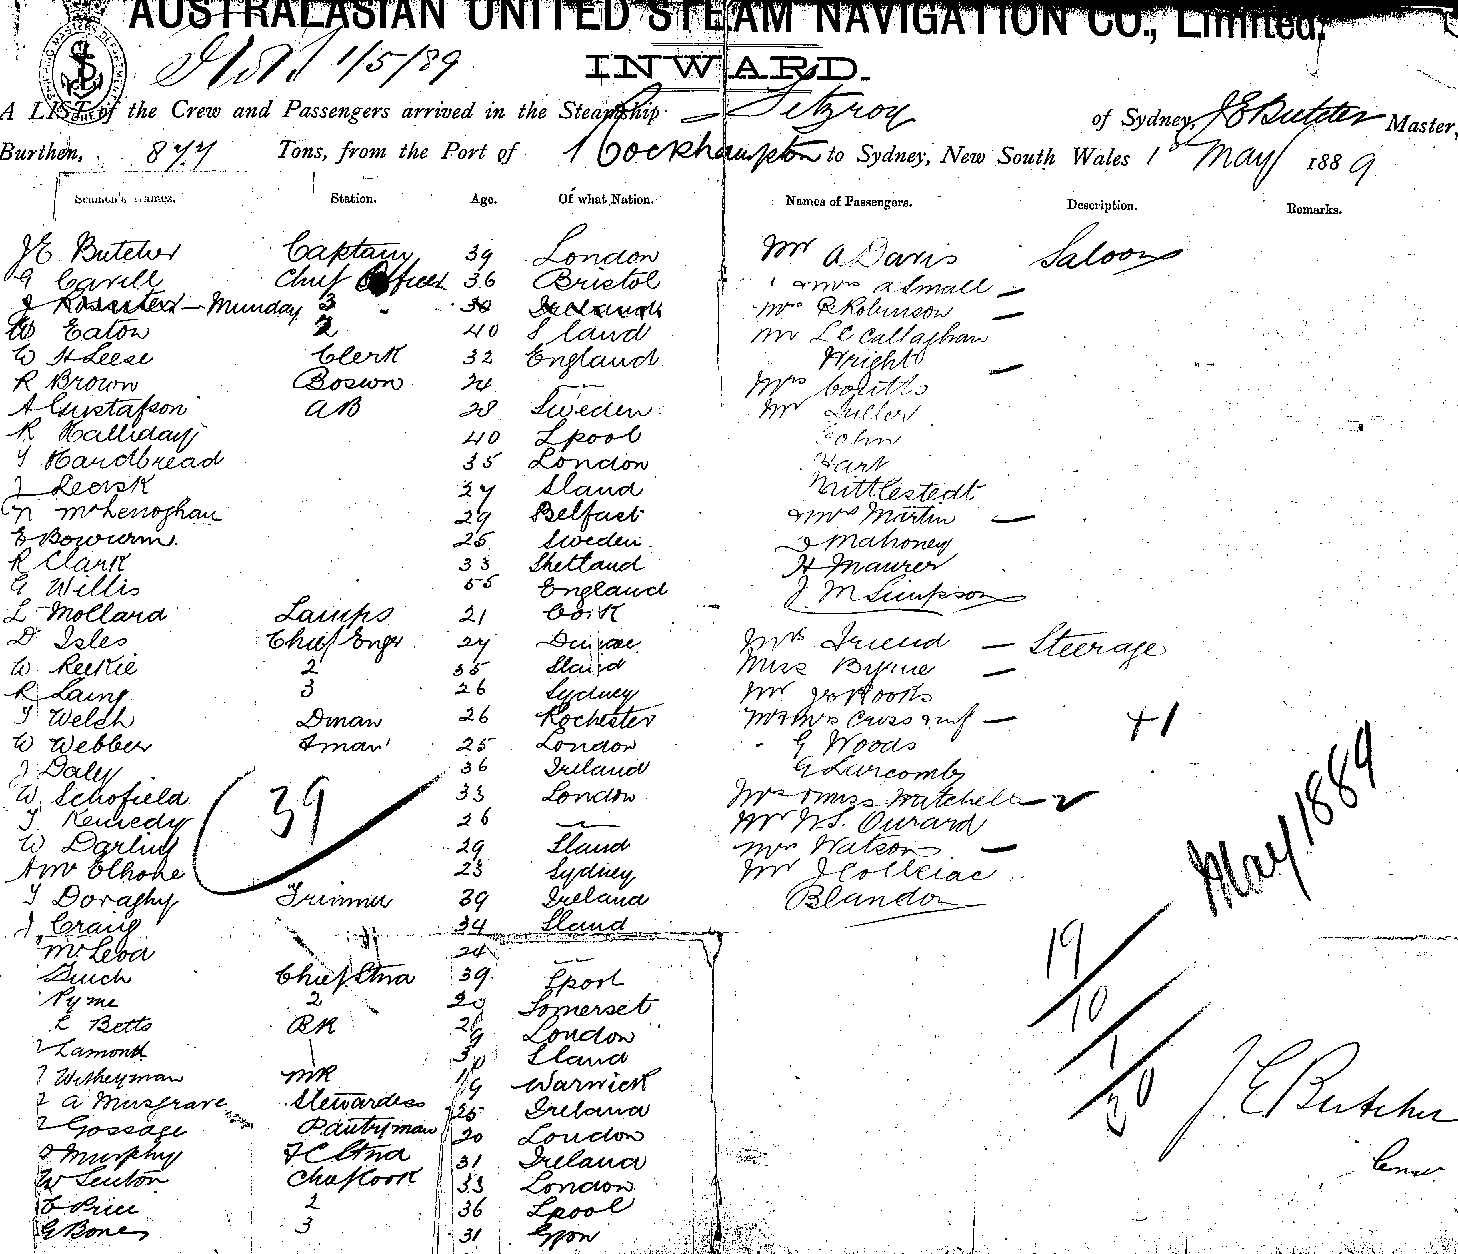 AUSTRALASIAN UNITED STEAM NAVIGATION CO., Limited.
1/5/89
INWARD.
A LIST of the Crew and Passengers arrived in the Steamship Fitzroy of Sydney, J E Butcher Master,
Burthen, 877 Tons, from the Port of Rockhampton to Sydney, New South Wales 1st May 1889
Seamen's Names. Station. Age. Of what Nation. Names of Passengers. Description. Remarks.
J E Butcher Captain 39 London Mr A Davis Saloon
G Cavill Chief Officer 36 Bristol & Mrs A Small —
J — Munday 3 " 30 Ireland Mrs R Robinson —
W Eaton 2 40 Sland Mr L C Callaghan
W H Leese Clerk 32 England Wright —
R Brown Boswn 24 — Mrs
A Gustafson AB 28 Sweden Mr Fuller
R Halliday 40 Lpool John
T Hardbread 35 London Hart
J 27 Sland Mittlestedt
N McLenoghan 29 Belfast & Mrs Martin —
E Bowurm 25 Sweden J Mahoney
R Clark 33 Shetland H Maurer
G Willis 55 England J M Simpson
L Mollard Lamps 21 Cork
D Isles Chief Engr 27 Mrs Friend — Steerage
W Reekie 2 35 Sland Miss Byrne —
R Laing 3 26 Sydney Mr Jno Hooks
T Welsh Dman 26 Rochester Mr & Mrs Cross & inf — +1
W Webber Fman 25 London G Woods
J Daly 36 Ireland G Larcomby
W Schofield 33 London Mrs & Miss Mitchell —
T Kennedy 26 — Mr W S. Ourard
W Darling 29 Sland Mrs Watson —
A Mc Elhone 23 Sydney Mr J
T Doraghy Trimmer 39 Ireland Blandon
J Craig 34 Sland
McLeod 24 —
Finch Chief Stwd 39 Lpool
Pyme 2 20 Somerset
E Betts BR London
Lamond Sland
Witheyman MR 19 Warwick
A Musgrave Stewardess 25 Ireland
Gossage Pantryman 20 London
Murphy F C Stwd 31 Ireland
W Senton Chief Cook 33 London
E Price 2 36 Lpool
G Bones 3 31
39
May 1889
19/10/1/30
J. E Butcher